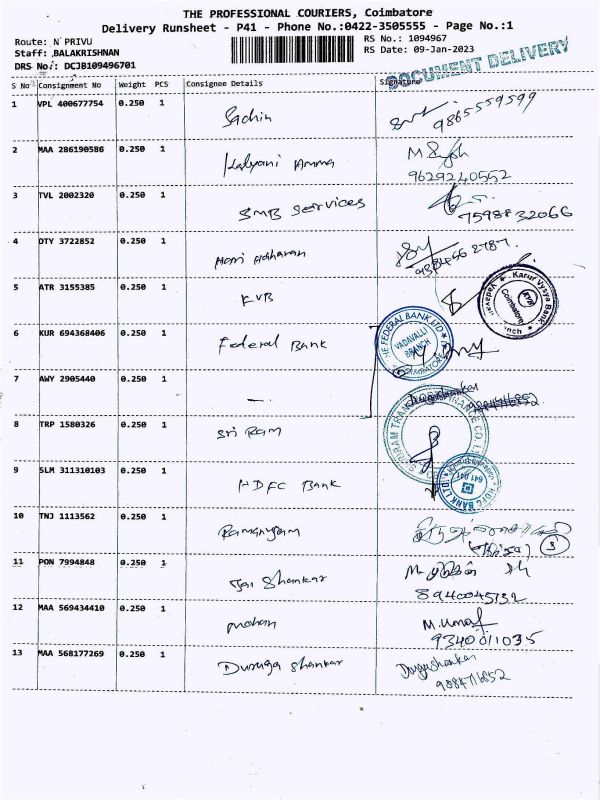 THE PROFESSIONAL COURIERS, Coimbatore
Delivery Runsheet - P41 - Phone No.:0422-3505555 - Page No.:1
Route: N PRIVU
RS No.: 1094967
Staff: BALAKRISHNAN
RS Date: 09-Jan-2023
DRS No.: DCJB109496701
DOCUMENT DELIVERY
S No Consignment No Weight PCS Consignee Details Signature
1 VPL 400677754 0.250 1 Sachin 9865559599
2 MAA 286190586 0.250 1 Kalyani Amma
9629240552
3 TVL 2002320 0.250 1 SMB Services 7598832066
4 OTY 3722852 0.250 1 Hari Haharan 9384562787
5 ATR 3155385 0.250 1 KVB
Karur Vysya Bank
KVB
Coimbatore
6 KUR 694368406 0.250 1 Federal Bank
THE FEDERAL BANK LTD
VADAVALLI
BRANCH
COIMBATORE
7 AWY 2905440 0.250 1 —
8 TRP 1580326 0.250 1 Sri Ram
9 SLM 311310103 0.250 1 HDFC Bank
HDFC BANK LTD
641 041
10 TNJ 1113562 0.250 1 Ramanujam
3
11 PON 7994848 0.250 1 Jai Shankar
8940045132
12 MAA 569434410 0.250 1 Mohan
9340011035
13 MAA 568177269 0.250 1 Duruga Shankar Durgashankar
9884716852